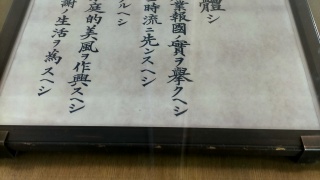 體シ
業報國ノ實ヲ擧クヘシ
時流ニ先ンスヘシ
ルヘシ
庭的美風ヲ作興スヘシ
謝ノ生活ヲ為スヘシ